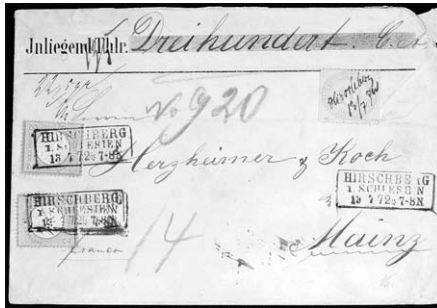 Inliegend Thlr. Dreihundert.
No 920
Hirschberg
13/7
HIRSCHBERG
I. SCHLESIEN
13 7 72 7-8N.
Herzheimer & Koch
HIRSCHBERG
I. SCHLESIEN
13 7 72 7-8N
HIRSCHBERG
I. SCHLESIEN
13 7 72 7-8N.
franco
14
Mainz